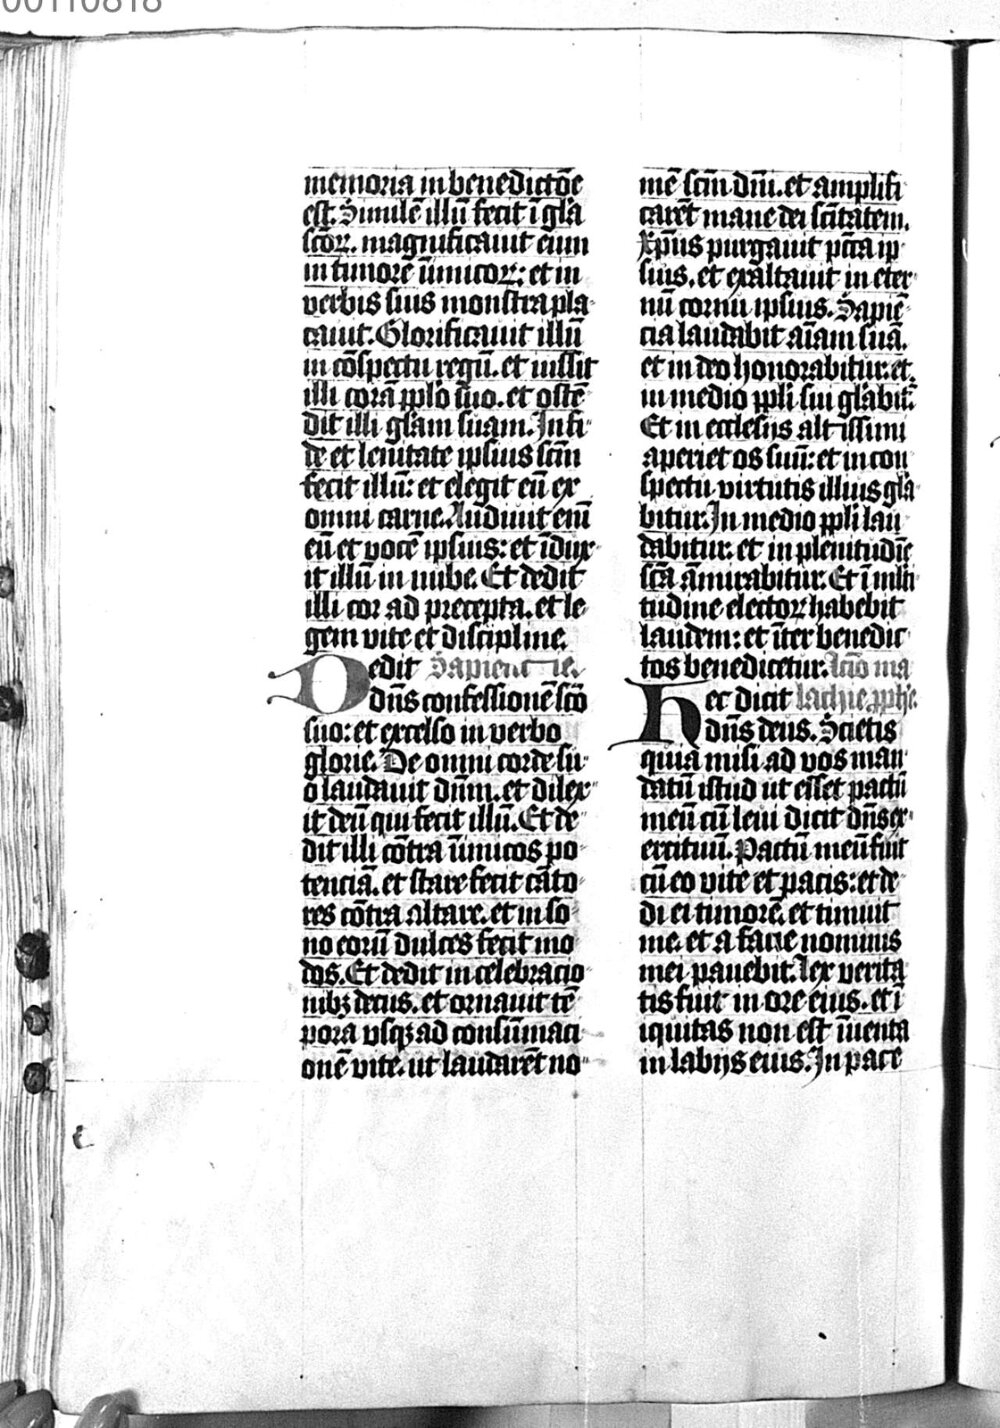 00110818
memoria in benedictōe
est. Similē illū fecit ī gl̄a
sc̄oꝝ. magnificauit eum
in timore īimicoꝝ: et in
verbis suis monstra pla
cauit. Glorificauit illū
in cōspectu regū. et iussit
illi corā pplo suo. et ostē
dit illi gl̄am suam. In fi
de et lenitate ipsius sc̄m
fecit illū: et elegit eū ex
omni carne. Audiuit em̄
eū et vocē ipsius: et īdux
it illū in nube. Et dedit
illi cor ad precepta. et le
gem vite et discipline.
Dedit Sapientie.
dn̄s confessionē sc̄o
suo: et excelso in verbo
glorie. De omni corde su
o laudauit dn̄m. et dilex
it deū qui fecit illū. Et de
dit illi cōtra īimicos po
tenciā. et stare fecit cāto
res cōtra altare. et in so
no eorū dulces fecit mo
dos. Et dedit in celebracio
nibꝫ decus. et ornauit tē
pora vsqꝫ ad consūmaci
onē vite. ut laudarēt no
mē sc̄m dn̄i. et amplifi
carēt mane dei sc̄itatem.
Xp̄us purgauit pc̄ca ip
sius. et exaltauit in eter
nū cornu ipsius. Sapiē
cia laudabit aīam suā.
et in deo honorabitur. et
in medio ppli sui gl̄abit̄.
Et in ecclesijs altissimi
aperiet os suū: et in con
spectu virtutis illius gl̄a
bitur. In medio ppli lau
dabitur: et in plenitudīe
sc̄a āmirabitur. Et ī mlti
tudine electoꝝ habebit
laudem: et īter benedic
tos benedicetur. Lcīo ma
Hec dicit lachie pphe.
dn̄s deus. Scietis
quia misi ad vos man
datū istud ut esset pactū
meū cū leui dicit dn̄s ex
ercituū. Pactū meū fuit
cū eo vite et pacis: et de
di ei timorē. et timuit
me. et a facie nominis
mei pauebat. Lex verita
tis fuit in ore eius. et ī
iquitas non est īuenta
in labijs eius. In pace